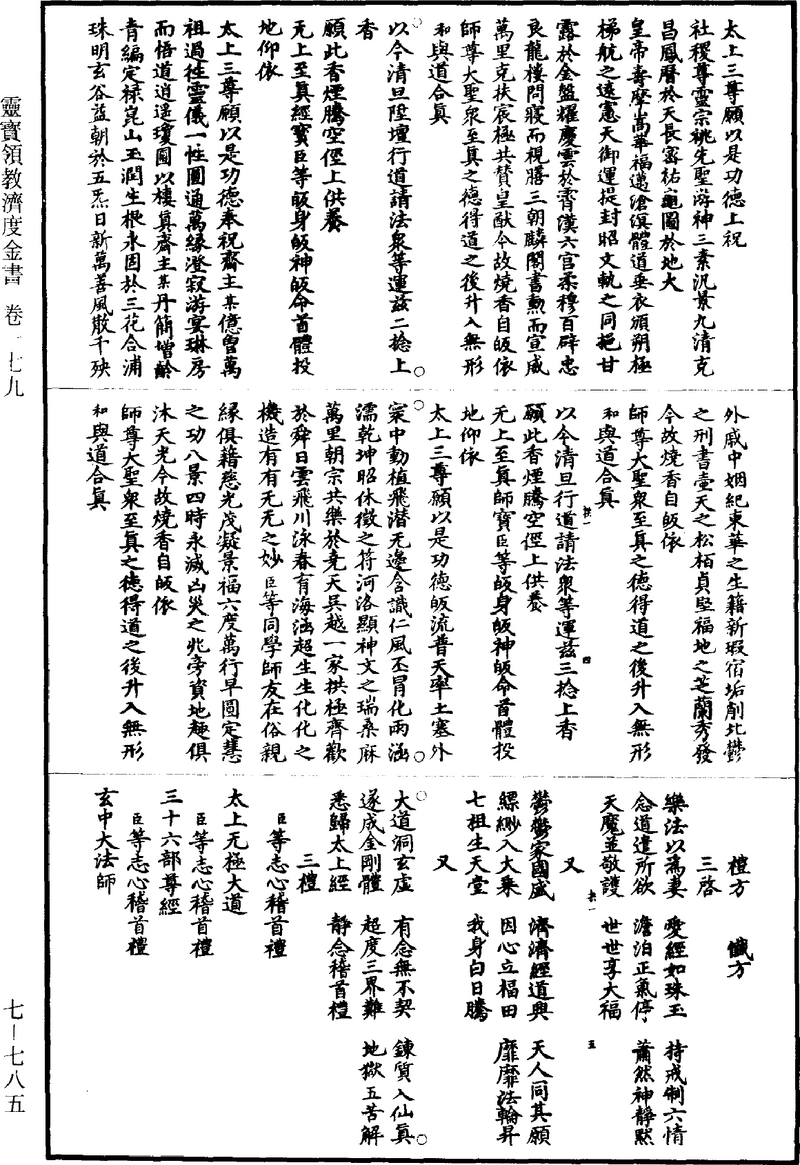 太上三尊願以是功德上祝
社稷尊靈宗祧先聖游神三素汎景九清克
昌鳳曆於天長密祐龜圖於地久
皇帝壽摩嵩華福邁滄溟體道垂衣頒朔極
梯航之遠憲天御運提封昭文軌之同挹甘
露於金盤耀慶雲於霄漢六宮柔穆百辟忠
良龍樓問寢而視膳三朝麟閣書勳而宣威
萬里克扶宸極共贊皇猷今故燒香自皈依
師尊大聖衆至真之德得道之後升入無形
和與道合真
以今清旦陞壇行道請法衆等運茲二捻上
香
願此香煙騰空徑上供養
无上至真經寶臣等皈身皈神皈命首體投
地仰依
太上三尊願以是功德奉祝齋主某億曾萬
祖過往靈儀一性圓通萬緣澄寂游宴琳房
而悟道逍遥瓊圃以棲真齋主某丹簡增齡
青編定禄崑山玉潤生根永固於三花合浦
珠明玄谷益朝於五炁日新萬善風散千殃
外戚中姻紀東華之生籍新瑕宿垢削北酆
之刑書壼天之松栢貞堅福地之芝蘭秀發
今故燒香自皈依
師尊大聖衆至真之德得道之後升入無形
和與道合真
以今清旦行道請法衆等運茲三捻上香
願此香煙騰空徑上供養
无上至真師寶臣等皈身皈神皈命首體投
地仰依
太上三尊願以是功德皈流普天率土塞外
寰中動植飛潛无邊含識仁風丕冒化雨涵
濡乾坤昭休徵之符河洛顯神文之瑞桑麻
萬里朝宗共樂於堯天吳越一家拱極齊歡
於舜日雲飛川泳春育海涵超生生化化之
機造有有无无之妙臣等同學師友在俗親
緣俱籍慈光茂凝景福六度萬行早圓定慧
之功八景四時永滅凶災之兆旁資地類俱
沐天光今故燒香自皈依
師尊大聖衆至真之德得道之後升入無形
和與道合真
禮方 懺方
三啓
樂法以爲妻 愛經如珠玉 持戒制六情
念道遣所欲 澹泊正氣停 蕭然神靜默
天魔並敬護 世世享大福
又
鬱鬱家國盛 濟濟經道興 天人同其願
縹緲入大乘 因心立福田 靡靡法輪昇
七祖生天堂 我身白日騰
又
大道洞玄虛 有念無不契 鍊質入仙真
遂成金剛體 超度三界難 地獄五苦解
悉歸太上經 靜念稽首禮
三禮
臣等志心稽首禮
太上无極大道
臣等志心稽首禮
三十六部尊經
臣等志心稽首禮
玄中大法師
靈寶領教濟度金書 卷一七九
七—七八五